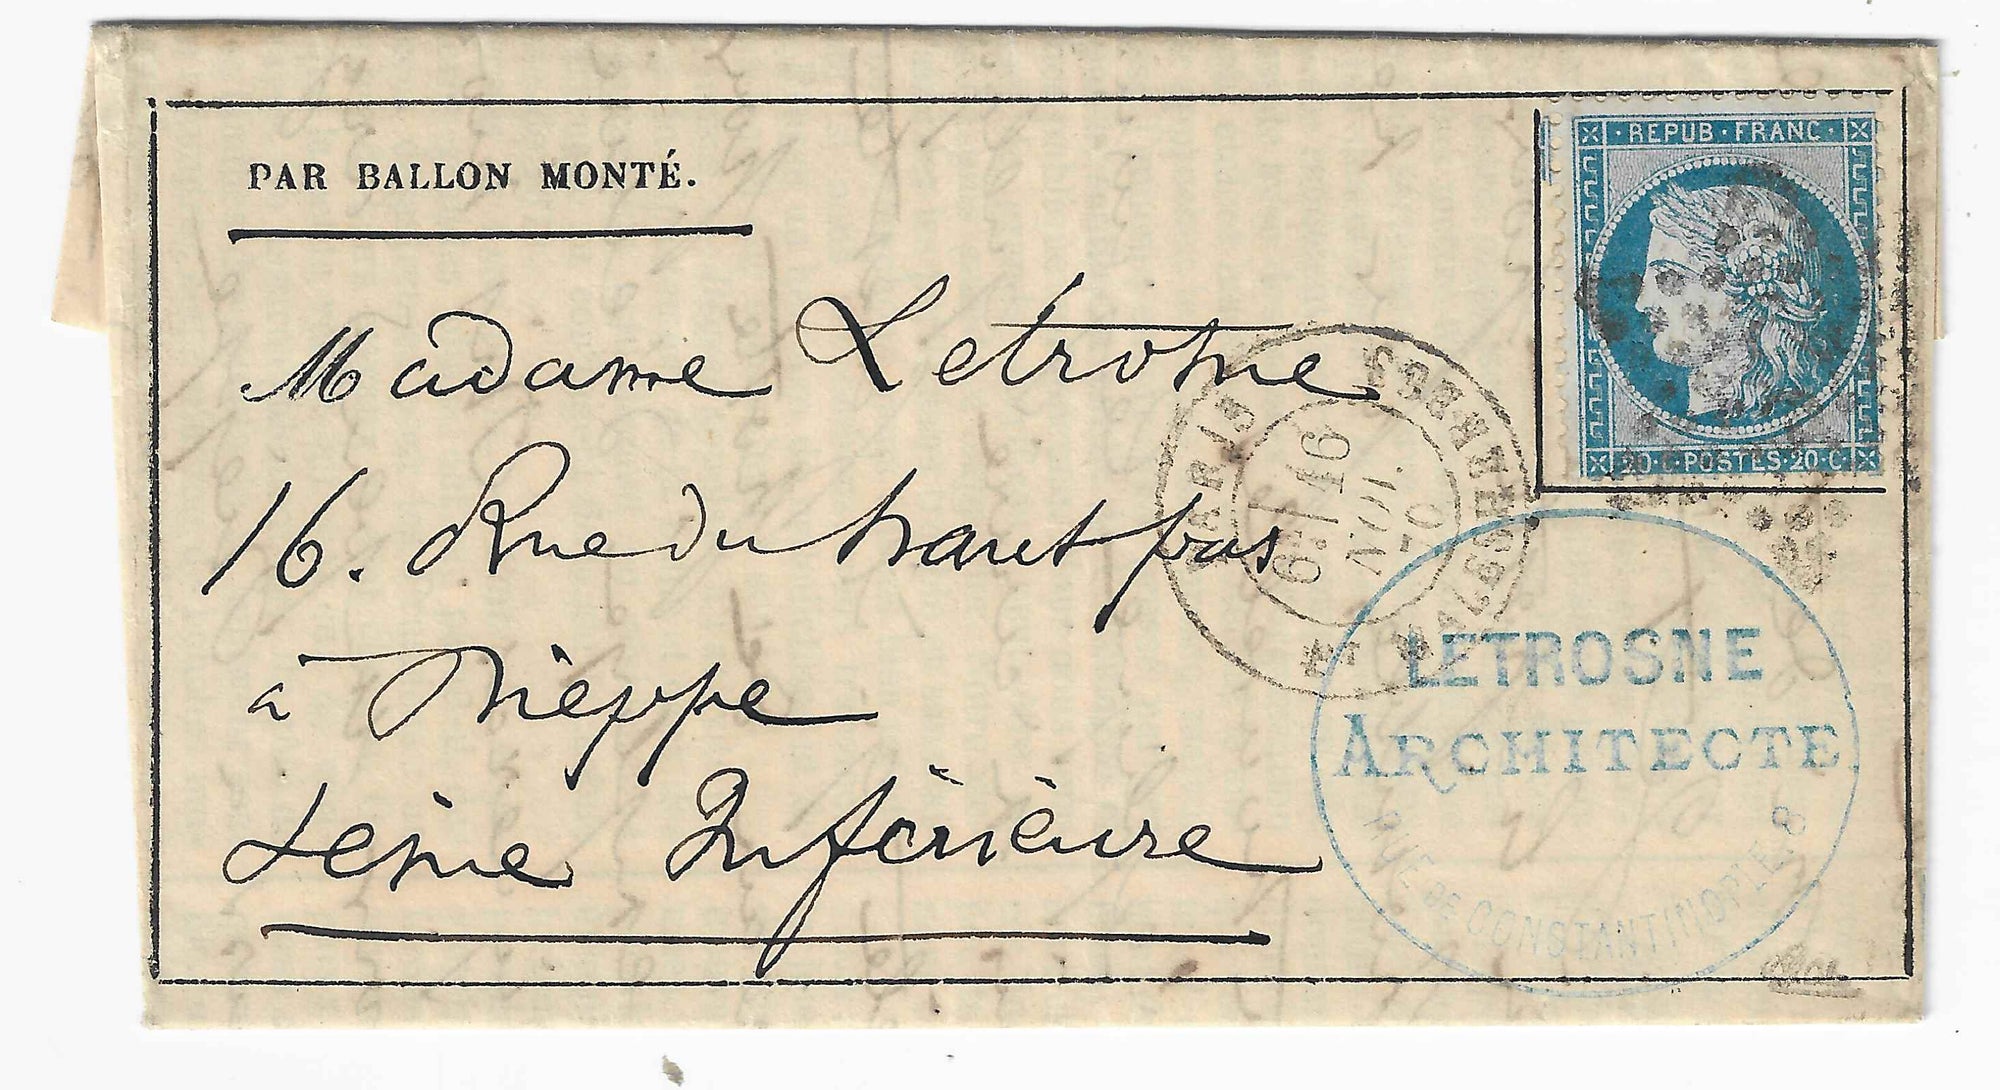 PAR BALLON MONTÉ.
REPUB · FRANC ·
20 · C · POSTES · 20 · C ·
Madame Letrosne
16. Rue du haut pas
à Dieppe
Seine Inférieure
PARIS
Bt MALESHERBES
6E/ 16
NOV.
70
LETROSNE
ARCHITECTE
RUE DE CONSTANTINOPLE, 8